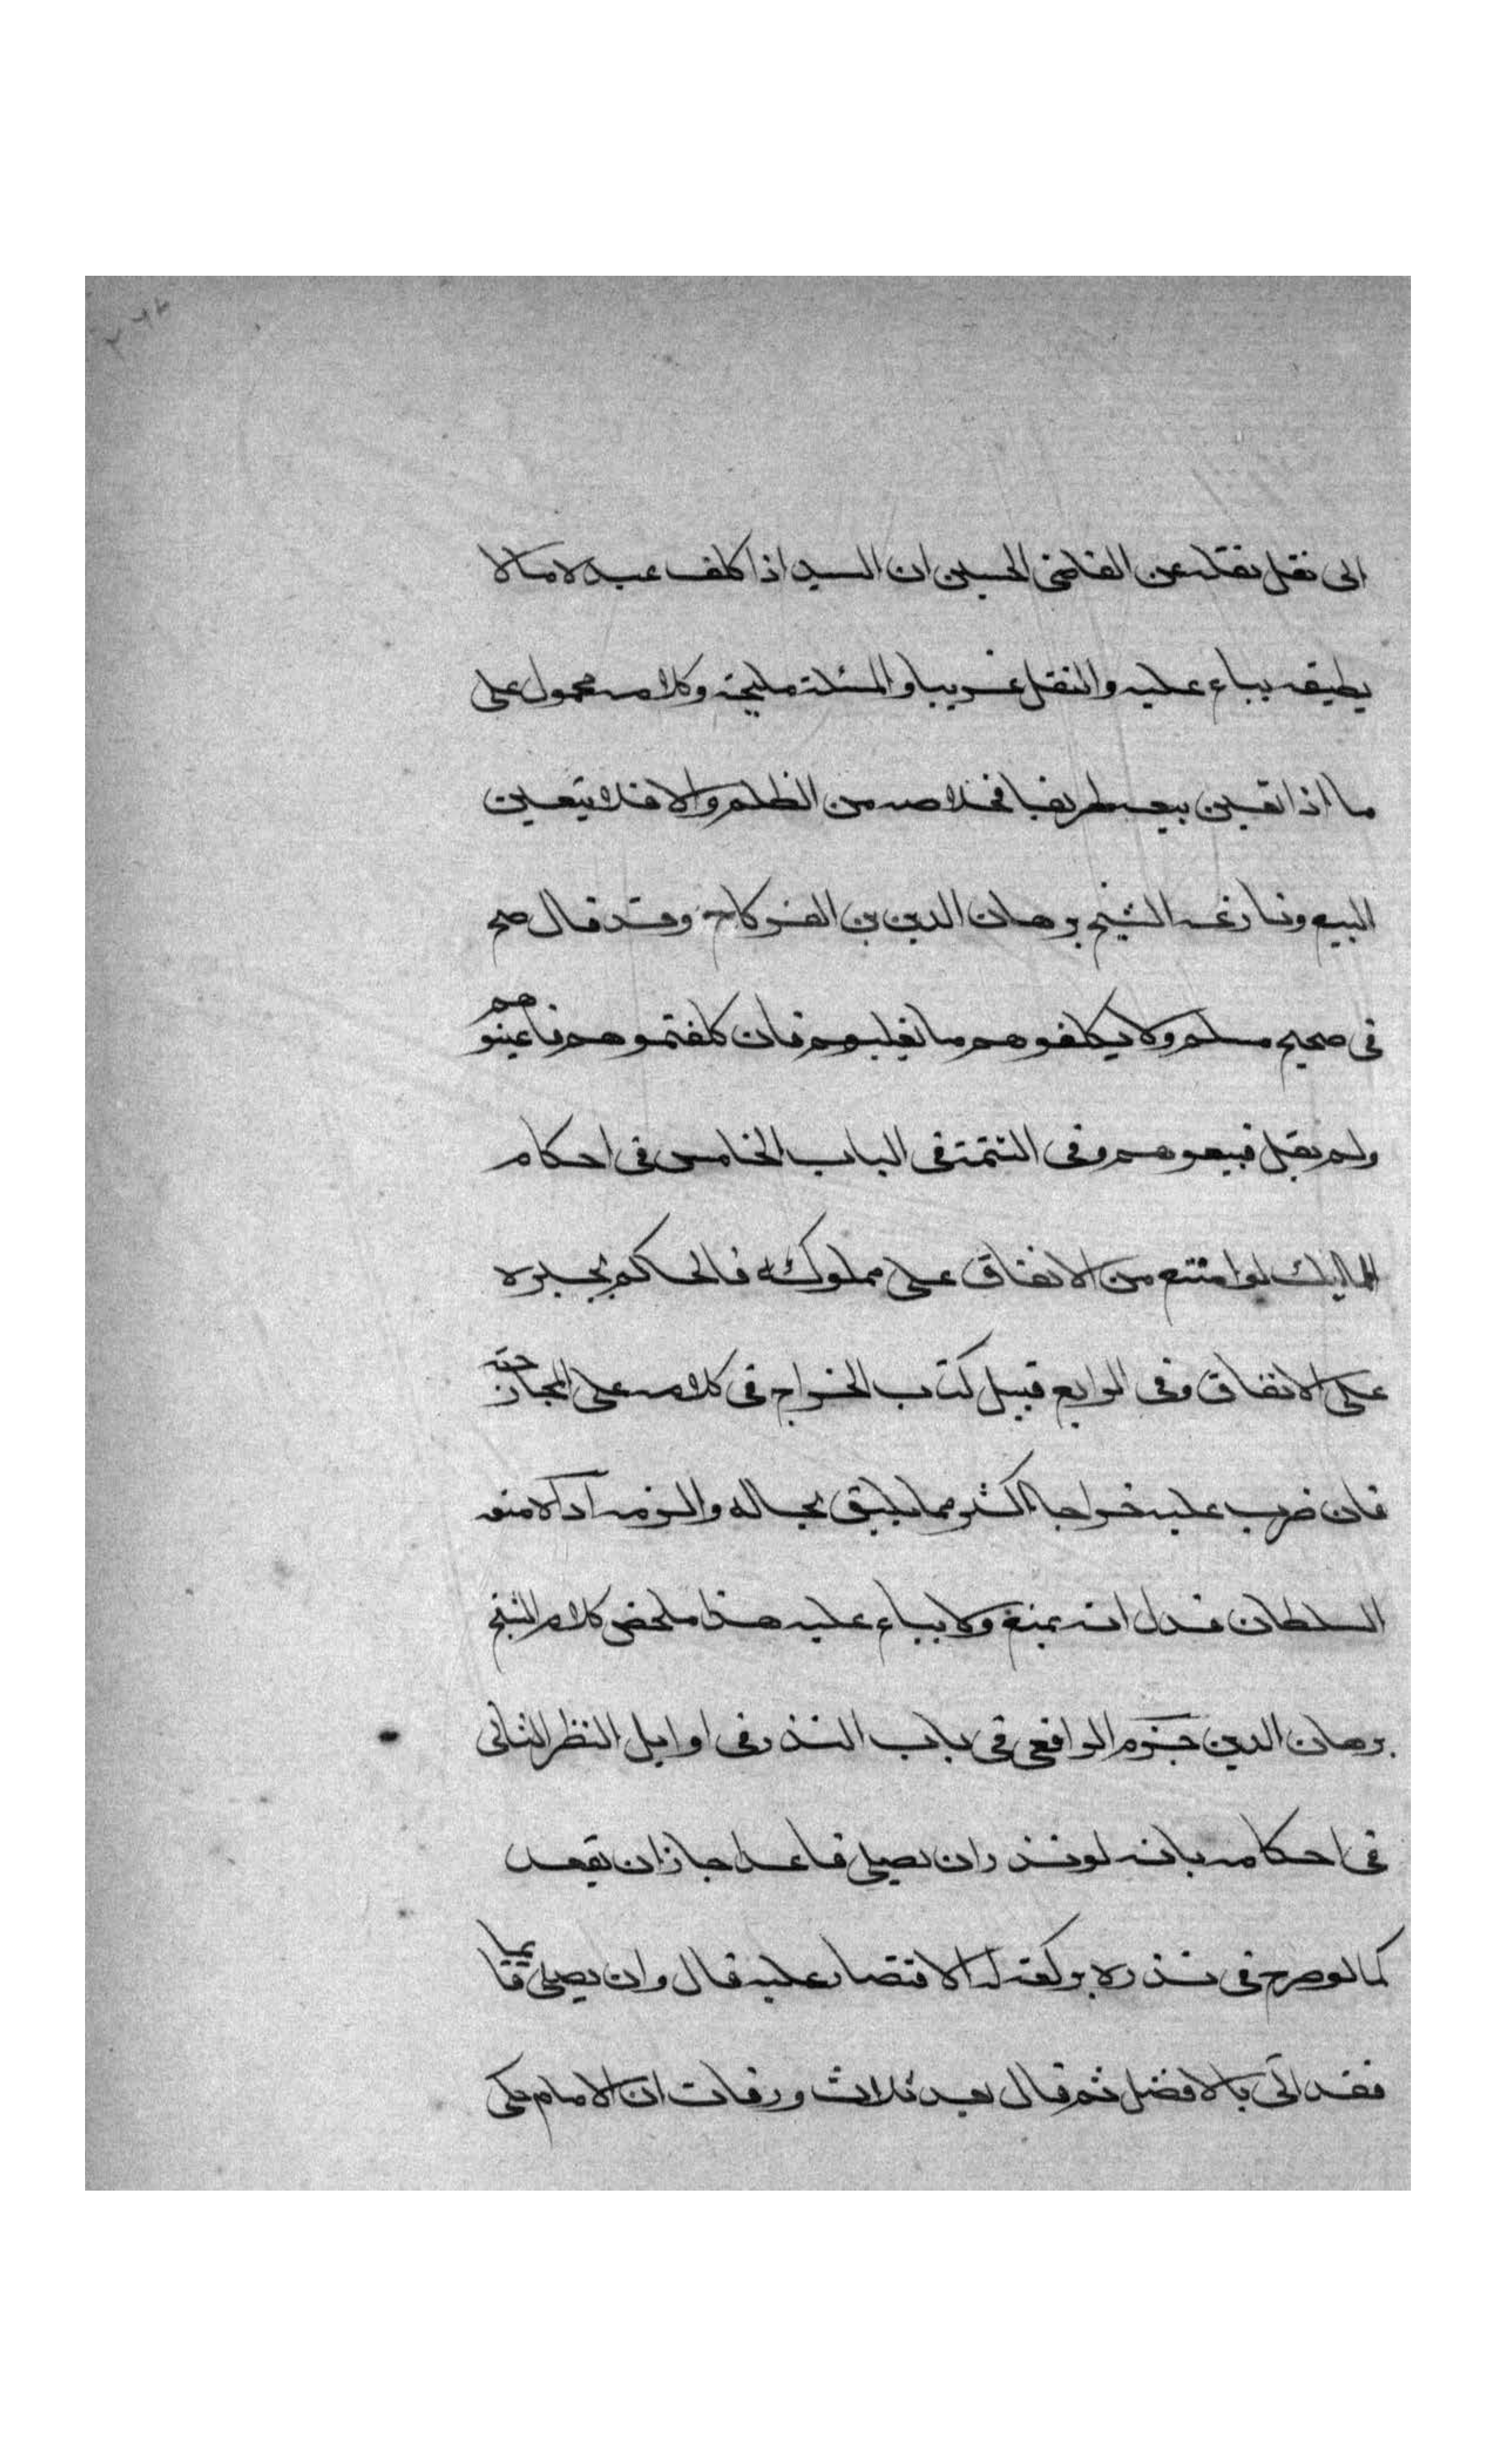 الى نقل نقله عن القاضى الحسين ان السيد اذا كلف عبده ما لا
يطيقه يباع عليه والنقل غريبا والمسئلة مليحة وكلامه محمول على
ما اذا تعين بيعه طريقا فى خلاصه من الظلم والا فلا يتعين
البيع ونازعه الشيخ برهان الدين بن الفركاح وقد قال صح
فى صحيح مسلم ولا يكلفوهم ما يغلبهم فان كلفتموهم فاعينوهم
ولم يقل فبيعوهم وفى التتمة فى الباب الخامس فى احكام
المماليك لو امتنع من الانفاق على مملوكه فالحاكم يجبره
على الانفاق وفى الرابع قبيل كتاب الخراج فى كلامه على المخارجة
فان ضرب عليه خراجا اكثر مما يليق بحاله والزمه اداه منعه
السلطان فدل انه يمنع ولا يباع عليه هذا ملخص كلام الشيخ
برهان الدين جزم الرافعى فى باب النذر فى اوايل النظر الثانى
فى احكامه بانه لو نذر ان يصلى قاعدا جاز ان يقعد
كما لو صرح فى نذره بركعة له الاقتصار عليه قال وان يصلى قائما
فقد اتى بالافضل ثم قال بعد ثلاث ورقات ان الامام حكى